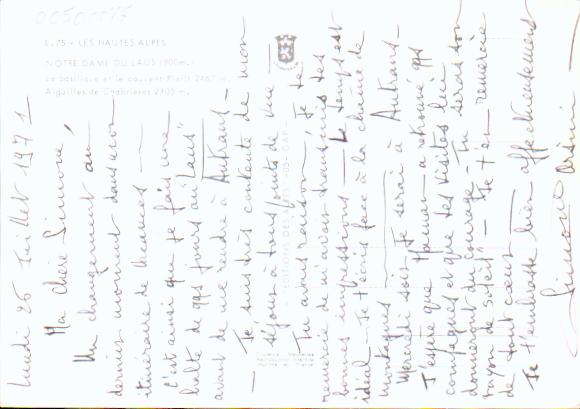 00501177
L.75 - LES HAUTES ALPES
NOTRE DAME DU LAUS (900m.)
La basilique et le couvent Piolit 2467 m.
Aiguilles de Chabrières 2405 m.
EDITIONS DES ALPES - GAP
Lundi 26 Juillet 1971
Ma Chère Simone,
Un changement au
dernier moment dans mon
itinéraire de vacances —
C'est ainsi que je fais une
halte de qqs jours au "Laus"
avant de me rendre à Autrans -
— Je suis très contente de mon
séjour à tous points de vue —
Tu avais raison, je te
remercie de m'avoir transmis tes
bonnes impressions — Le temps est
idéal — Je t'écris face à la chaîne de
montagnes
Mercredi soir je serai à Autrans -
J'espère que Maman a retrouvé qqs
compagnes et que tes visites lui
donneront du courage - Tu seras son
"rayon de soleil" - Je t'en remercie
de tout cœur -
Je t'embrasse bien affectueusement
Simone